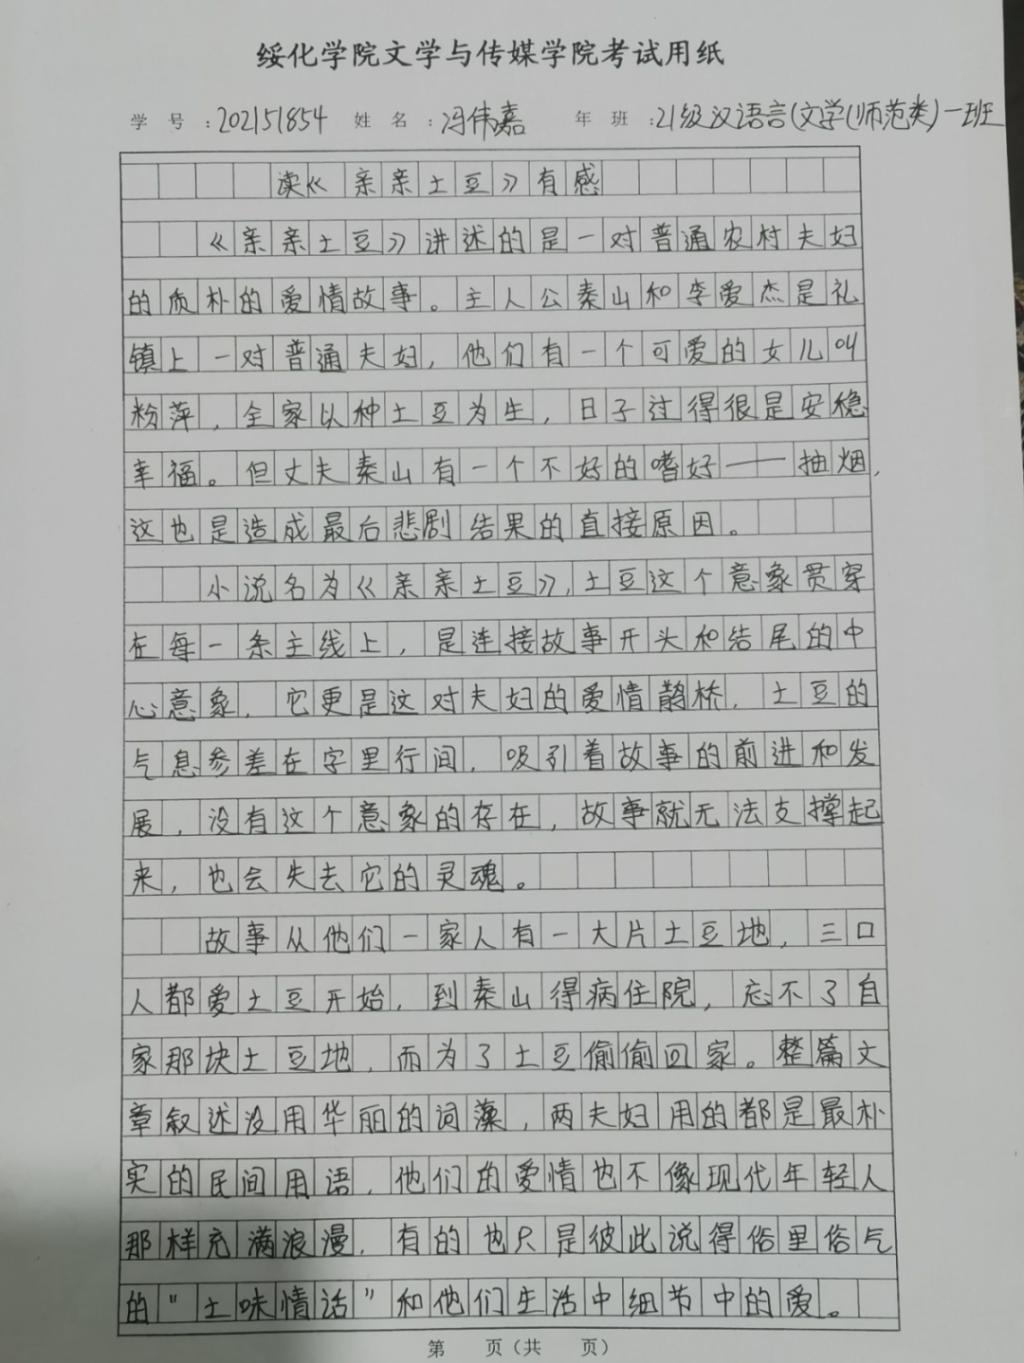 绥化学院文学与传媒学院考试用纸
学号：202151854 姓名：冯伟嘉 年班：21级汉语言(文学(师范类)一班
读《亲亲土豆》有感
《亲亲土豆》讲述的是一对普通农村夫妇
的质朴的爱情故事。主人公秦山和李爱杰是礼
镇上一对普通夫妇，他们有一个可爱的女儿叫
粉萍，全家以种土豆为生，日子过得很是安稳
幸福。但丈夫秦山有一个不好的嗜好——抽烟，
这也是造成最后悲剧结果的直接原因。
小说名为《亲亲土豆》，土豆这个意象贯穿
在每一条主线上，是连接故事开头和结尾的中
心意象，它更是这对夫妇的爱情鹊桥，土豆的
气息参差在字里行间，吸引着故事的前进和发
展，没有这个意象的存在，故事就无法支撑起
来，也会失去它的灵魂。
故事从他们一家人有一大片土豆地，三口
人都爱土豆开始，到秦山得病住院，忘不了自
家那块土豆地，而为了土豆偷偷回家。整篇文
章叙述没用华丽的词藻，两夫妇用的都是最朴
实的民间用语，他们的爱情也不像现代年轻人
那样充满浪漫，有的也只是彼此说得俗里俗气
的"土味情话"和他们生活中细节中的爱。
第 页（共 页）